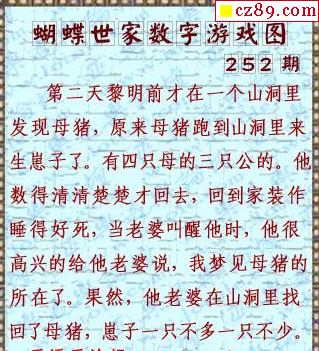 cz89.com
蝴蝶世家数字游戏图
252期
第二天黎明前才在一个山洞里
发现母猪，原来母猪跑到山洞里来
生崽子了。有四只母的三只公的。他
数得清清楚楚才回去，回到家装作
睡得好死，当老婆叫醒他时，他很
高兴的给他老婆说，我梦见母猪的
所在了。果然，他老婆在山洞里找
回了母猪，崽子一只不多一只不少。